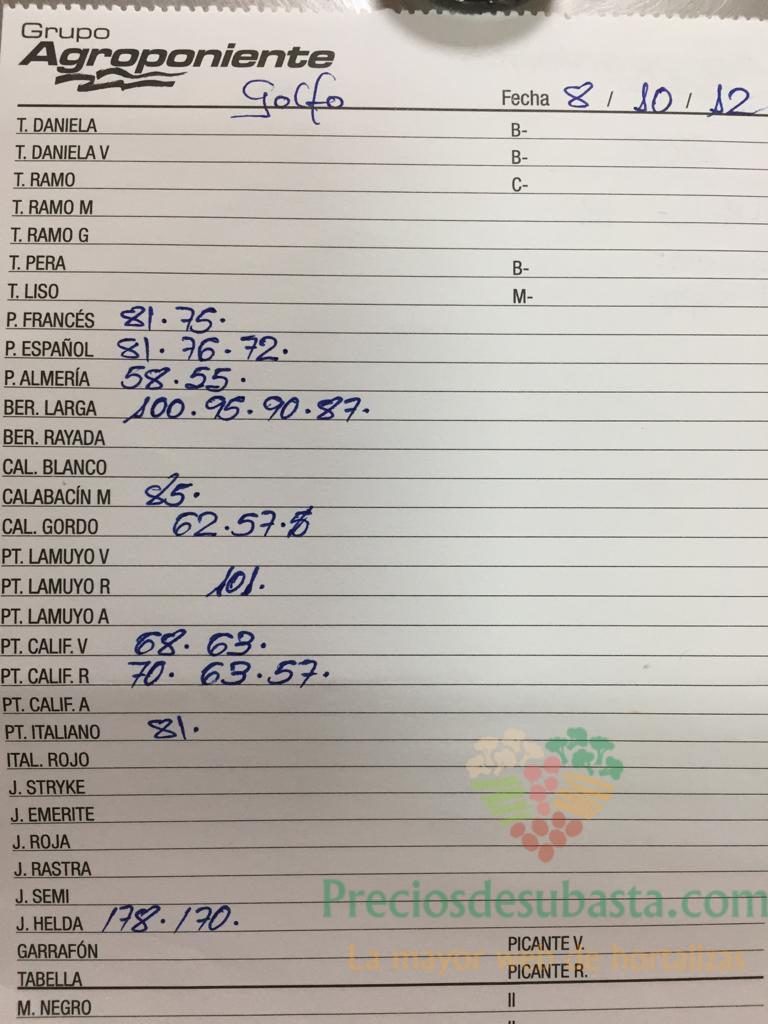 Grupo
Agroponiente
Golfo Fecha 8 / 10 / 12
T. DANIELA B-
T. DANIELA V B-
T. RAMO C-
T. RAMO M
T. RAMO G
T. PERA B-
T. LISO M-
P. FRANCÉS 81. 75.
P. ESPAÑOL 81. 76. 72.
P. ALMERÍA 58. 55.
BER. LARGA 100. 95. 90. 87.
BER. RAYADA
CAL. BLANCO
CALABACÍN M 85.
CAL. GORDO 62. 57.
PT. LAMUYO V
PT. LAMUYO R 101.
PT. LAMUYO A
PT. CALIF. V 68. 63.
PT. CALIF. R 70. 63. 57.
PT. CALIF. A
PT. ITALIANO 81.
ITAL. ROJO
J. STRYKE
J. EMERITE
J. ROJA
J. RASTRA
J. SEMI
Preciosdesubasta.com
J. HELDA 178. 170.
GARRAFÓN PICANTE V.
La mayor web de hortalizas
TABELLA PICANTE R.
M. NEGRO II